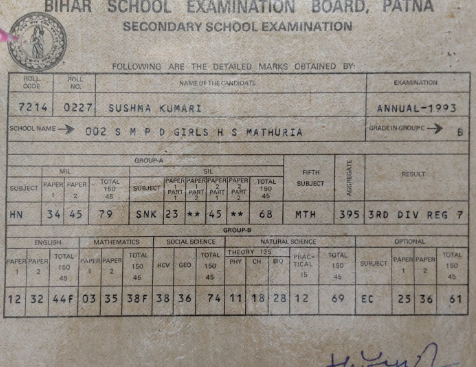 BIHAR SCHOOL EXAMINATION BOARD, PATNA
SECONDARY SCHOOL EXAMINATION
FOLLOWING ARE THE DETAILED MARKS OBTAINED BY:
ROLL CODE ROLL NO. NAME OF THE CANDIDATE EXAMINATION
7214 0227 SUSHMA KUMARI ANNUAL-1993
SCHOOL NAME → 002 S M P D GIRLS H S MATHURIA GRADE IN GROUP C → B
GROUP-A
MIL SIL FIFTH SUBJECT AGGREGATE RESULT
SUBJECT PAPER 1 PAPER 2 TOTAL 150 45 SUBJECT PAPER 1 PART 1 PAPER PART PAPER 2 PART PAPER 2 PART TOTAL 150 45
HN 34 45 79 SNK 23 ** 45 ** 68 MTH 395 3RD DIV REG 7
GROUP-B
ENGLISH MATHEMATICS SOCIAL SCIENCE NATURAL SCIENCE OPTIONAL
PAPER 1 PAPER 2 TOTAL 150 45 PAPER 1 PAPER 2 TOTAL 150 45 HCV GEO TOTAL 150 45 THEORY 135 PHY CH BIO PRACTICAL 15 TOTAL 150 45 SUBJECT PAPER 1 PAPER 2 TOTAL 150 45
12 32 44F 03 35 38F 38 36 74 11 18 28 12 69 EC 25 36 61